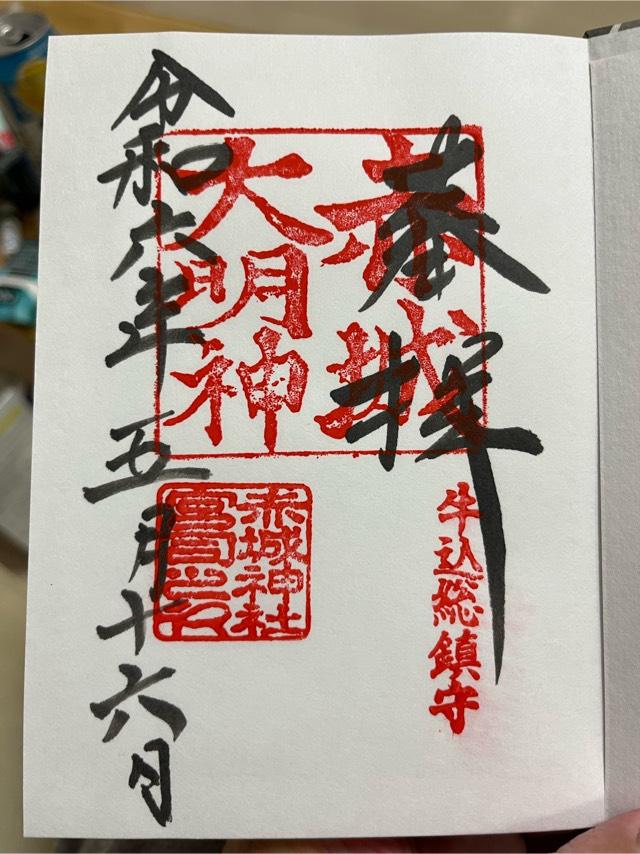 奉拝
赤城
大明神
牛込総鎮守
赤城神社
宮司之印
令和六年五月十六日